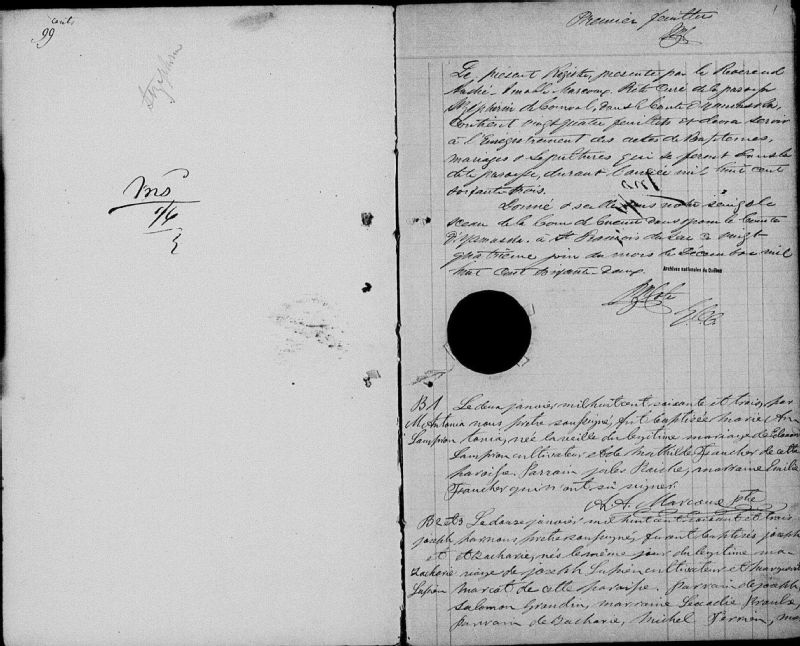 cents
99
St Zephirin
Premier feuillet
Le présent Registre, présenté par le Révérend
André Amable Marcoux Ptre Curé de la paroisse
St Zéphirin de Courval, dans le Comté d'Yamaska,
contient vingt quatre feuillets et devra servir
à l'Enrégistrement des actes de Baptemes,
mariages & Sépultures qui se feront dans la
dite paroisse, durant l'année mil huit cent
soixante trois.
Donné sous notre seing & le
sceau de la Cour de Circuit dans & pour le Comté
d'Yamaska, à St François du Lac ce vingt
quatrième jour du mois de Décembre mil
huit cent soixante deux
Archives nationales du Québec
B1
M. Antonia
Lampron
Le deux janvier mil huit cent soixante et trois, par
nous prêtre soussigné, fut baptisée marie An
tonia, née la veille du légitime mariage de Edouard
Lampron cultivateur et de mathilde Faucher de cette
paroisse. Parrain jules marraine Emilie
Faucher qui n'ont su signer.
A. A. Marcoux ptre
B2 et 3
joseph
et
Zacharie
Lupien
Le douze janvier mil huit cent soixante et trois
par nous prêtre soussigné, furent baptisés joseph
et Zacharie, nés le même jour du légitime ma
riage de joseph Lupien cultivateur et marguerite
marcot de cette paroisse. Parrain de joseph
Salomon Grandin, marraine Léocadie Proulx,
parrain de Zacharie, Michel Terrien, ma